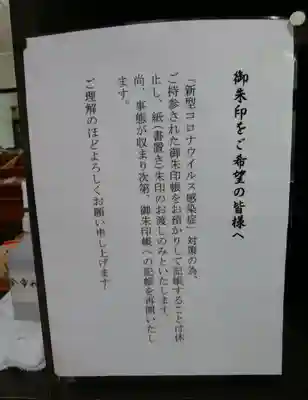 御朱印をご希望の皆様へ
『新型コロナウイルス感染症』対策の為、
ご持参された御朱印帳をお預かりして記帳することは休
止し、紙（書置き）朱印のお渡しのみといたします。
尚、事態が収まり次第、御朱印帳への記帳を再開いたし
ます。
ご理解のほどよろしくお願い申し上げます